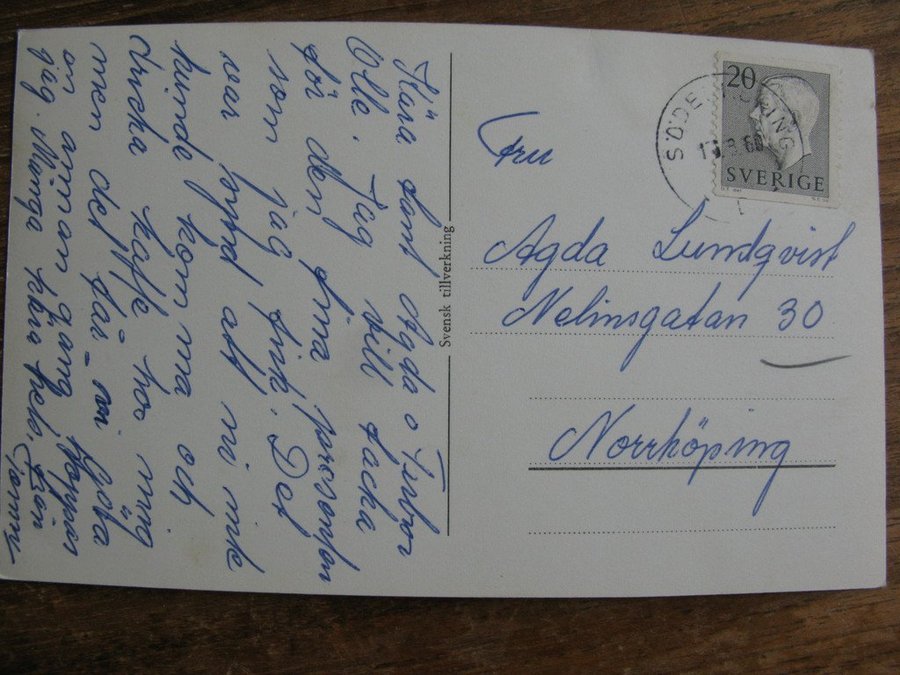 Kära tant Agda o Furbor
Olle. Jag vill tacka
för den fina presenten
som jag fick. Det
var synd att ni inte
kunde komma och
dricka kaffe hos mig
men det får vi göra
en annan gång hoppas
jag. Många kära hels. från
Svensk tillverkning
20
SVERIGE
SÖDE KÖPING
3 60
Fru
Agda Lundqvist
Nelinsgatan 30
Norrköping